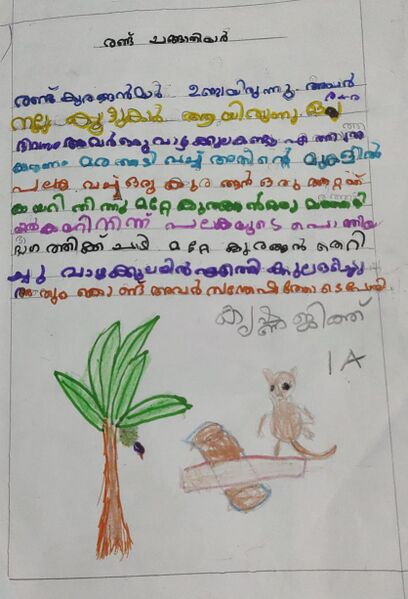 രണ്ട് ചങ്ങാതിമാർ
രണ്ട് കുരങ്ങൻമാർ ഉണ്ടായിരുന്നു അവർ
നല്ല കൂട്ടുകാർ ആയിരുന്നു ഒരു
ദിവസം അവർ ഒരു വാഴക്കുല കണ്ടു
മരത്തടി വച്ച് അതിന്റെ മുകളിൽ
പലക വച്ച് ഒരു കുരങ്ങൻ ഒരു അറ്റത്ത്
കയറി നിന്നു മറ്റേ കുരങ്ങൻ
കയറിനിന്ന് പലകയുടെ പൊങ്ങിയ
ഭാഗത്തിക്ക് ചാടി മറ്റേ കുരങ്ങൻ തെറി
ച്ചു വാഴക്കുലയിൽ എത്തി കുലപറിച്ചു
അതും കൊണ്ട് അവർ സന്തോഷത്തോടെ പോയി
കൃഷ്ണജിത്ത്
1 A